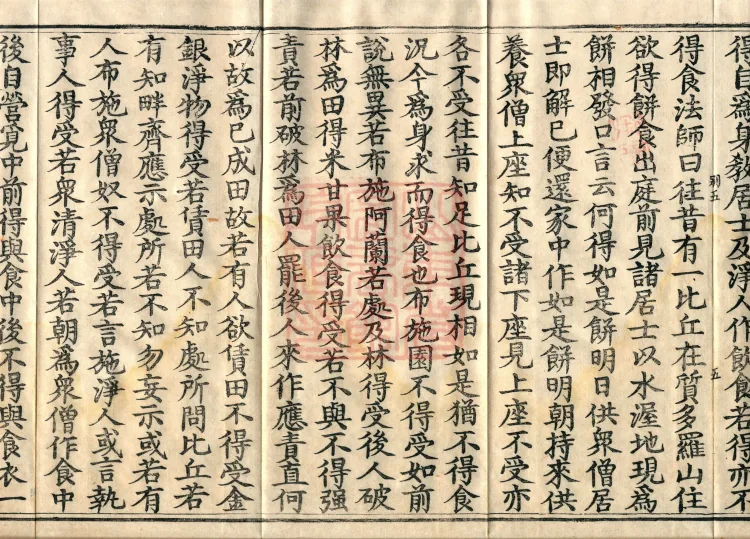 得自為身教居士及淨人作飲食若得亦不
得食法師曰往昔有一比丘在質多羅山住
欲得餅食出庭前見諸居士以水渥地現為
餅相發口言云何得如是餅明日供眾僧居
士即解已便還家中作如是餅明朝持來供
養眾僧上座知不受諸下座見上座不受亦
各不受往昔知足比丘現相如是猶不得食
況今為身求而得食也布施園不得受如前
說無異若布施阿蘭若處及林得受後人破
林為田得米甘果飲食得受若不與不得強
責若前破林為田人罷後人來作應責直何
以故為已成田故若有人欲賃田不得受金
銀淨物得受若賃田人不知處所問比丘若
有知畔齊應示處所若不知勿妄示或若有
人布施眾僧奴不得受若言施淨人或言執
事人得受若眾清淨人若朝為眾僧作食中
後自營覓中前得與食中後不得與食衣一
別五
五